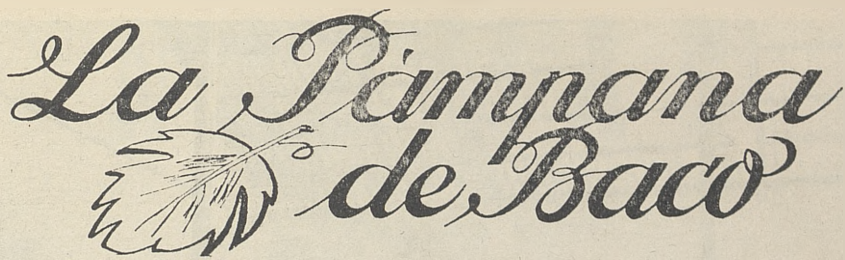 La Pámpana
de Baco